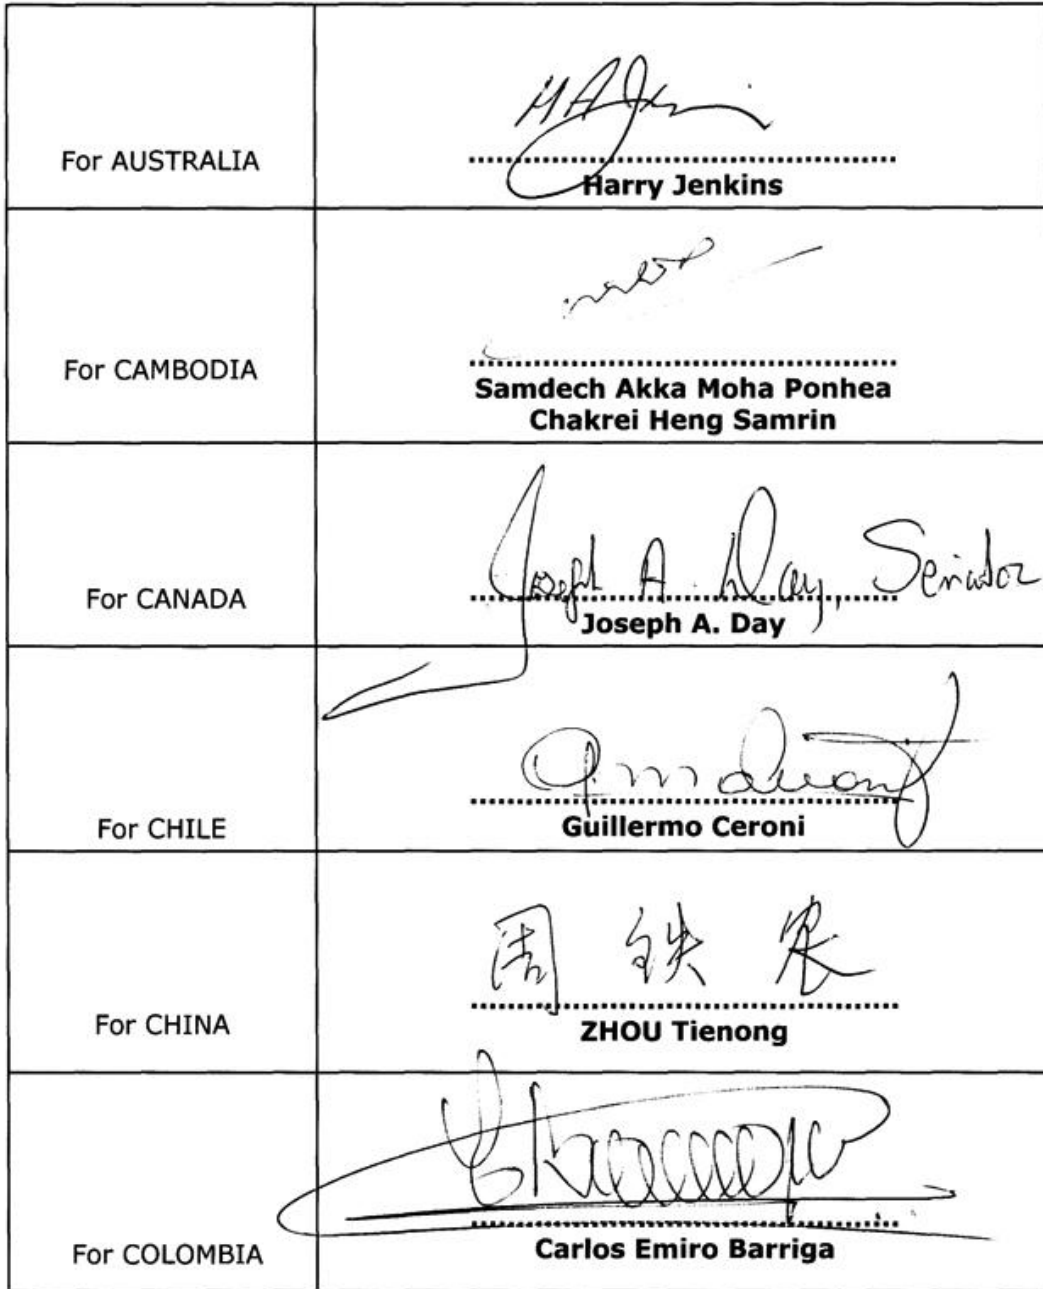 H A Jenkins
For AUSTRALIA
Harry Jenkins
For CAMBODIA
Samdech Akka Moha Ponhea
Chakrei Heng Samrin
Joseph A. Day, Senator
For CANADA
Joseph A. Day
For CHILE
Guillermo Ceroni
周 铁 农
For CHINA
ZHOU Tienong
For COLOMBIA
Carlos Emiro Barriga